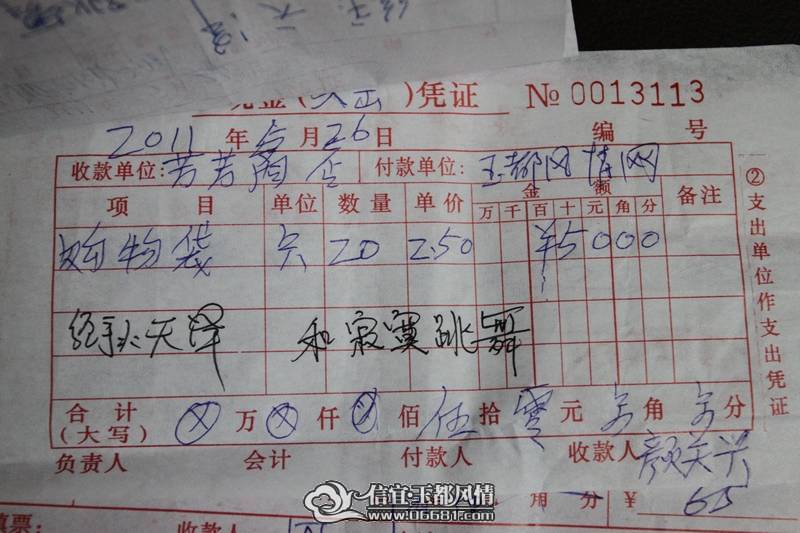 现金(支出)凭证 № 0013113
2011年5月26日 编 号
收款单位:芳芳商店 付款单位:玉都风情网
项 目 单位 数量 单价 金 额 备注
万 千 百 十 元 角 分
购物袋 只 20 2.50 ¥5000
经手:天泽 和寂寞跳舞
合 计 ⊗ 万 ⊗ 仟 ⊗ 佰 伍 拾 零 元 分
(大写) 角
负责人 会计 付款人 收款人 颜关兴
②支出单位作支出凭证
信宜玉都风情
www.06681.com
角 分 ¥ 65
填票: 收款人: